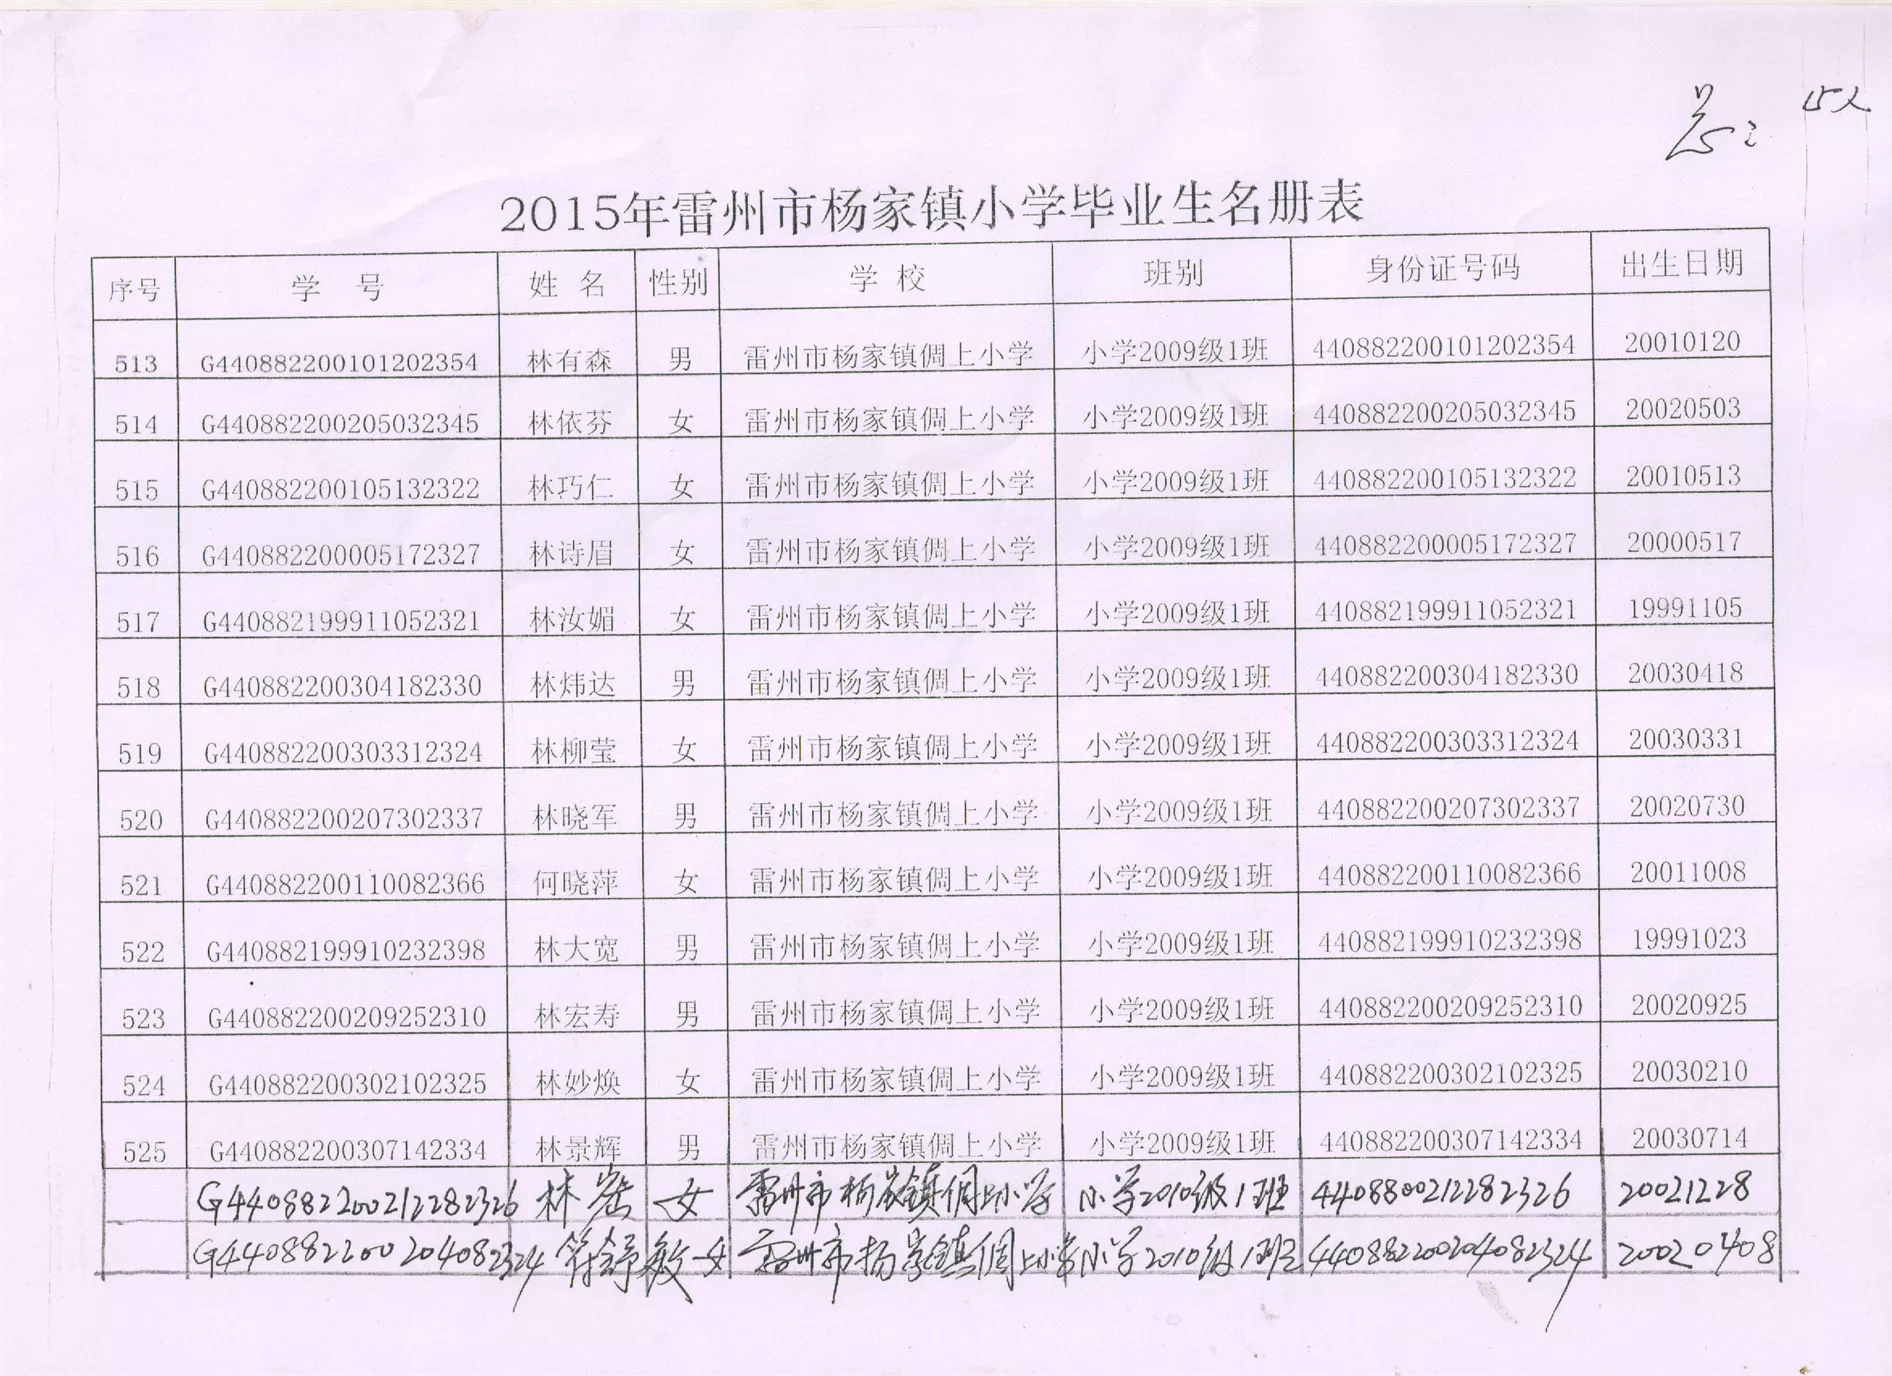 总: 15人
2015年雷州市杨家镇小学毕业生名册表
序号 学 号 姓 名 性别 学 校 班别 身份证号码 出生日期
513 G440882200101202354 林有森 男 雷州市杨家镇倜上小学 小学2009级1班 440882200101202354 20010120
514 G440882200205032345 林依芬 女 雷州市杨家镇倜上小学 小学2009级1班 440882200205032345 20020503
515 G440882200105132322 林巧仁 女 雷州市杨家镇倜上小学 小学2009级1班 440882200105132322 20010513
516 G440882200005172327 林诗眉 女 雷州市杨家镇倜上小学 小学2009级1班 440882200005172327 20000517
517 G440882199911052321 林汝媚 女 雷州市杨家镇倜上小学 小学2009级1班 440882199911052321 19991105
518 G440882200304182330 林炜达 男 雷州市杨家镇倜上小学 小学2009级1班 440882200304182330 20030418
519 G440882200303312324 林柳莹 女 雷州市杨家镇倜上小学 小学2009级1班 440882200303312324 20030331
520 G440882200207302337 林晓军 男 雷州市杨家镇倜上小学 小学2009级1班 440882200207302337 20020730
521 G440882200110082366 何晓萍 女 雷州市杨家镇倜上小学 小学2009级1班 440882200110082366 20011008
522 G440882199910232398 林大宽 男 雷州市杨家镇倜上小学 小学2009级1班 440882199910232398 19991023
523 G440882200209252310 林宏寿 男 雷州市杨家镇倜上小学 小学2009级1班 440882200209252310 20020925
524 G440882200302102325 林妙焕 女 雷州市杨家镇倜上小学 小学2009级1班 440882200302102325 20030210
525 G440882200307142334 林景辉 男 雷州市杨家镇倜上小学 小学2009级1班 440882200307142334 20030714
G440882200212282326 林密 女 雷州市杨家镇倜上小学 小学2010级1班 4408800212282326 20021228
G440882200204082324 符舒敏 女 雷州市杨家镇倜上小学 小学2010级1班 440882200204082324 20020408